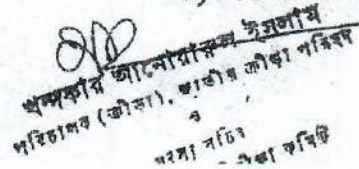 খন্দকার আনোয়ারুল ইসলাম
পরিচালক (ক্রীড়া), জাতীয় ক্রীড়া পরিষদ
ও
সদস্য সচিব
ক্রীড়া কমিটি